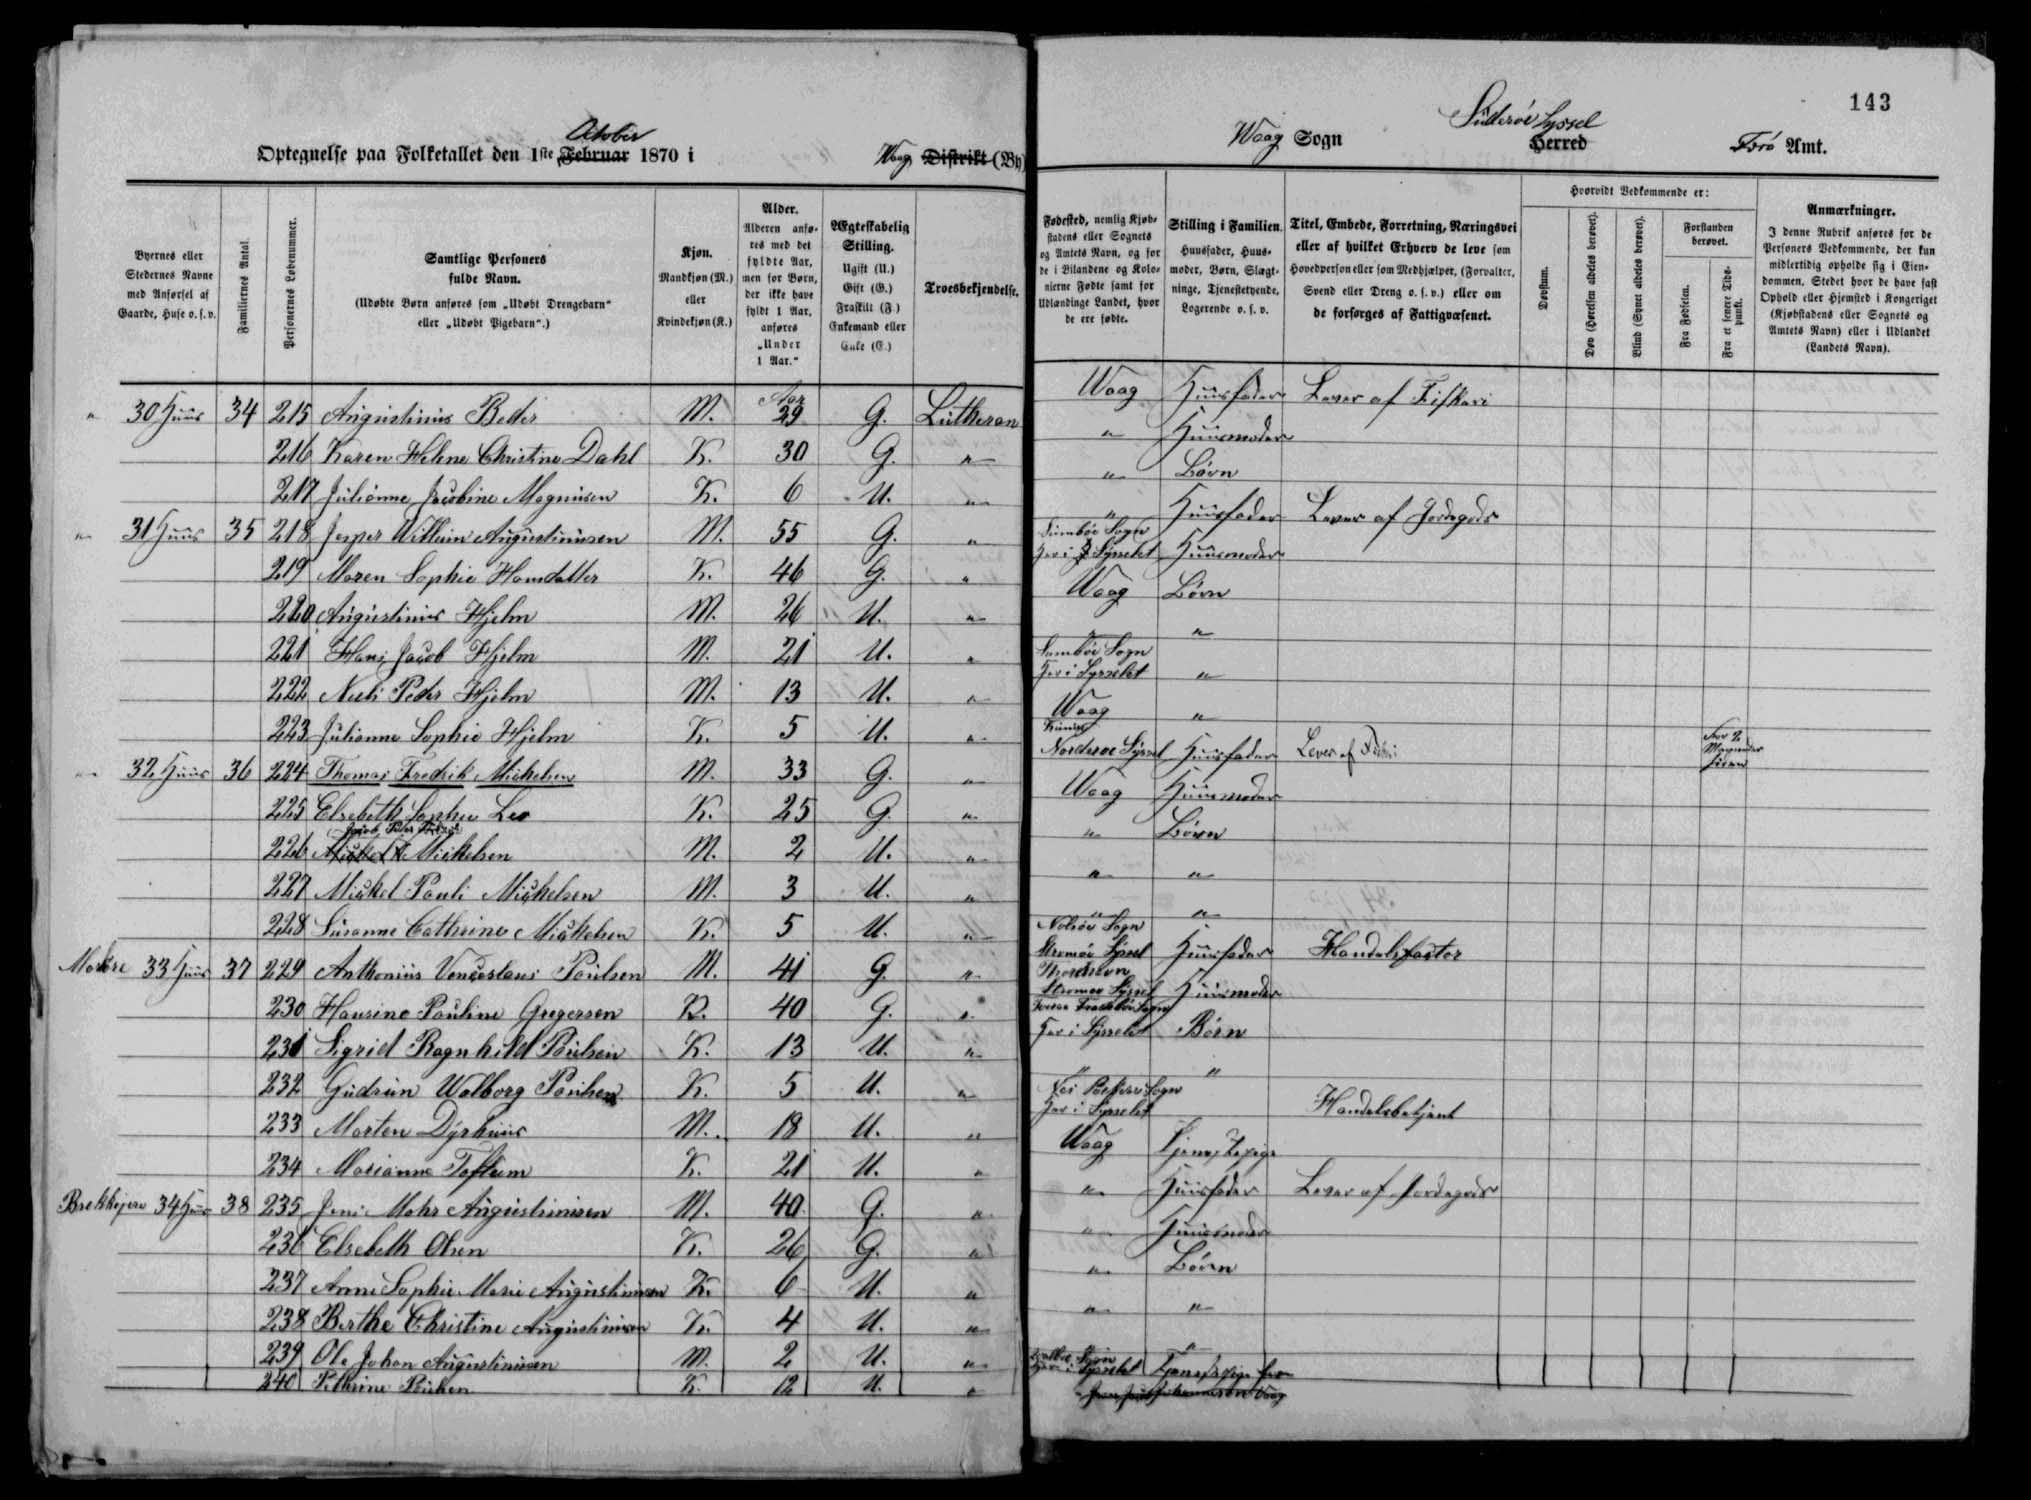 143
October
Optegnelse paa Folketallet den 1ste Februar 1870 i Waag Distrikt (By)
Waag Sogn Süderøe Syssel Herred Førö Amt.
Byernes eller Stedernes Navne med Anførsel af Gaarde, Huse o. s. v.
Familiernes Antal.
Personernes Løbenummer.
Samtlige Personers fulde Navn.
(Udøbte Børn anføres som „Udøbt Drengebarn“ eller „Udøbt Pigebarn“.)
Kjøn.
Mandkjøn (M.) eller Kvindekjøn (K.)
Alder.
Alderen anføres med det fyldte Aar, men for Børn, der ikke have fyldt 1 Aar, anføres „Under 1 Aar.“
Ægteskabelig Stilling.
Ugift (U.) Gift (G.) Fraskilt (F.) Enkemand eller Enke (E.)
Troesbekjendelse.
Fødested, nemlig Kjøbstadens eller Sognets og Amtets Navn, og for de i Bilandene og Kolonierne Fødte samt for Udlændinge Landet, hvor de ere fødte.
Stilling i Familien.
Huusfader, Huusmoder, Børn, Slægtninge, Tjenestetyende, Logerende o. s. v.
Titel, Embede, Forretning, Næringsvei eller af hvilket Erhverv de leve som Hovedperson eller som Medhjælper, (Forvalter, Svend eller Dreng o. s. v.) eller om de forsørges af Fattigvæsenet.
Hvorvidt Vedkommende er:
Døvstum.
Døv (Hørelsen aldeles berøvet).
Blind (Synet aldeles berøvet).
Forstanden berøvet.
Fra Fødselen.
Fra et senere Tidspunkt.
Anmærkninger.
I denne Rubrik anføres for de Personers Vedkommende, der kun midlertidig opholde sig i Eiendommen, Stedet hvor de have fast Ophold eller Hjemsted i Kongeriget (Kjøbstadens eller Sognets og Amtets Navn) eller i Udlandet (Landets Navn).
" 30 Huus 34 215 Augustinus Beder M. Aar 29 G. Lutheran Waag Huusfader Lever af Fiskeri
216 Karen Helene Christine Dahl K. 30 G. " " Huusmoder
217 Julianne Jacobine Magnusen K. 6 U. " " Börn
" 31 Huus 35 218 Jesper William Augustinusen M. 55 G. " " Huusfader Lever af Jordegods
219 Maren Sophie Hansdatter K. 46 G. " Sumböe Sogn her i Sysselet Huusmoder
220 Augustinus Hjelm M. 26 U. " Waag Börn
221 Hans Jacob Hjelm M. 21 U. " " "
222 Niels Peder Hjelm M. 13 U. " Sumböe Sogn her i Sysselet "
223 Julianne Sophie Hjelm K. 5 U. " Waag "
" 32 Huus 36 224 Thomas Fredrik Mickelsen M. 33 G. " Norderøe Syssel Huusfader Lever af Fiskeri For 2
225 Elsebeth Sophie K. 25 G. " Waag Huusmoder
226 Jacob Peder Mickelsen M. 2 U. " " Börn
227 Mickel Pauli Mickelsen M. 3 U. " " "
228 Susanne Cathrine Mickelsen K. 5 U. " " "
33 Huus 37 229 Anthonius Venceslaus Poulsen M. 41 G. " Nolsöe Sogn Strømøe Syssel Huusfader Handelsfactor
230 Hansine Pauline Gregersen K. 40 G. " Thorshavn Strømøe Syssel Huusmoder
231 Sigrid Ragnhild Poulsen K. 13 U. " Sogn her i Sysselet Börn
232 Gudrun Walborg Poulsen K. 5 U. " " "
233 Morten Dyrhuus M. 18 U. " Sogn her i Sysselet Handelsbetjent
234 Marianne Toftum K. 21 U. " Waag Tjenestepige
34 Huus 38 235 Jens Mohr Augustinusen M. 40 G. " " Huusfader Lever af Jordegods
236 Elsebeth Olsen K. 26 G. " " Huusmoder
237 Anne Sophie Marie Augustinusen K. 6 U. " " Börn
238 Berthe Christine Augustinusen K. 4 U. " " "
239 Ole Johan Augustinusen M. 2 U. " "
240 Poulsen K. 12 U. " Sogn her i Sysselet Tjenestepige